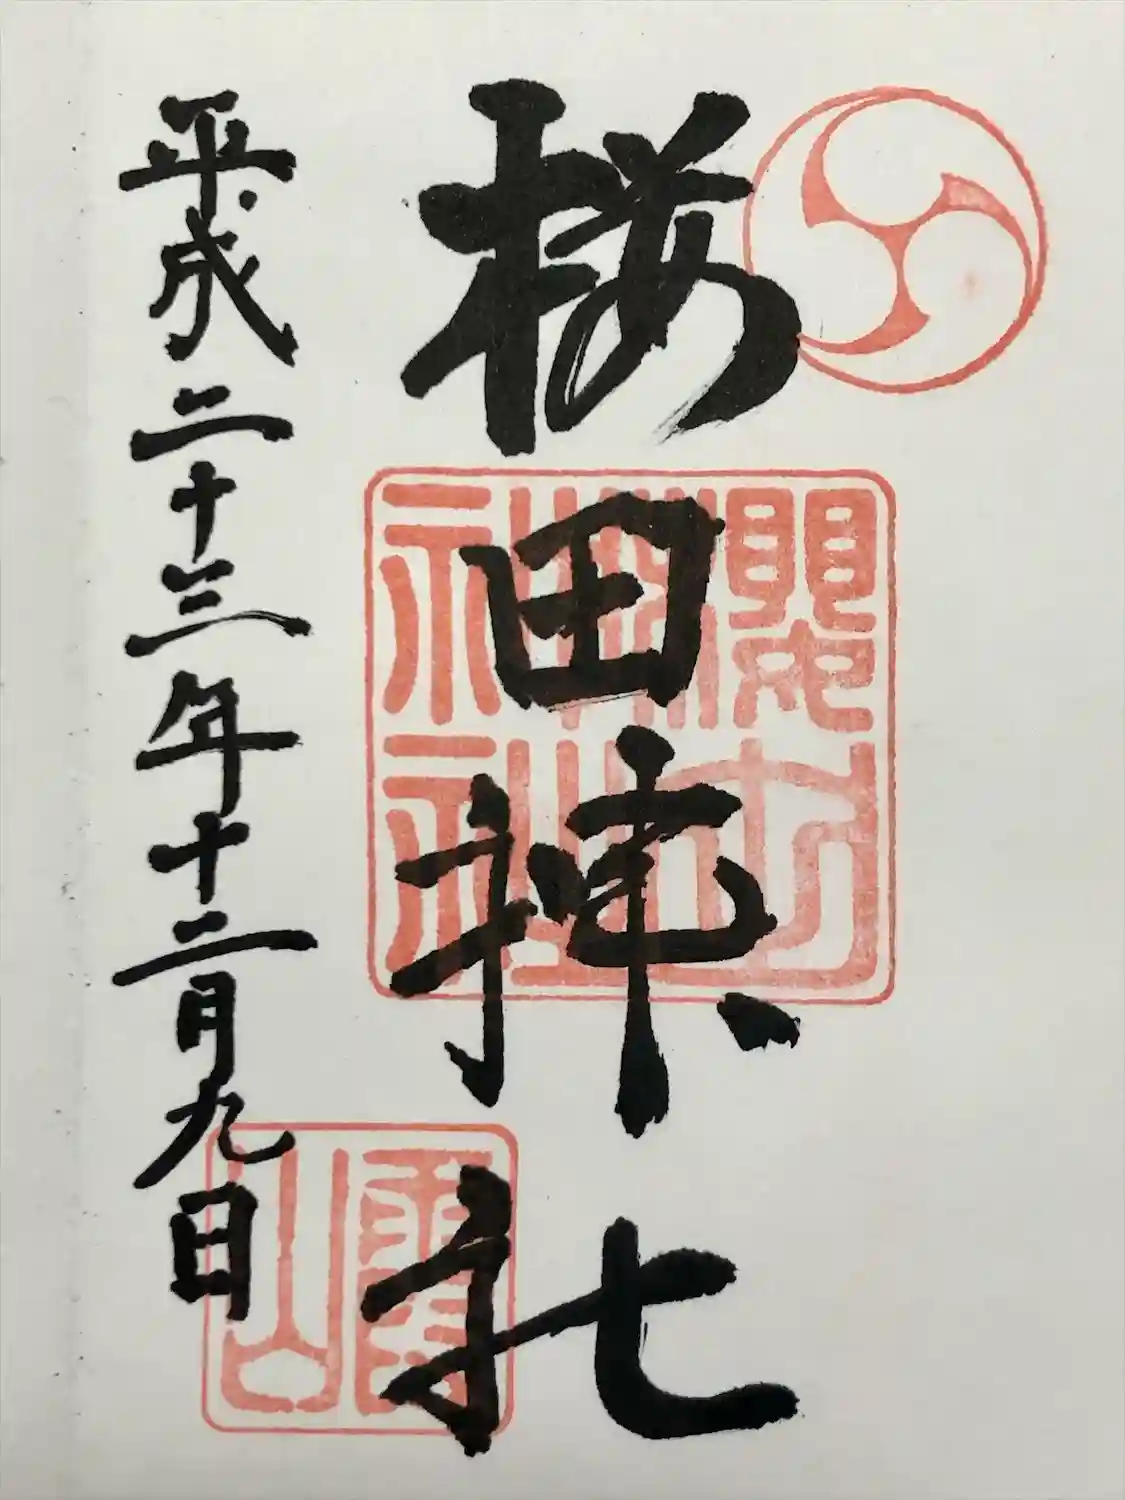 桜田神社
平成二十三年十二月九日
櫻田神社
霞山